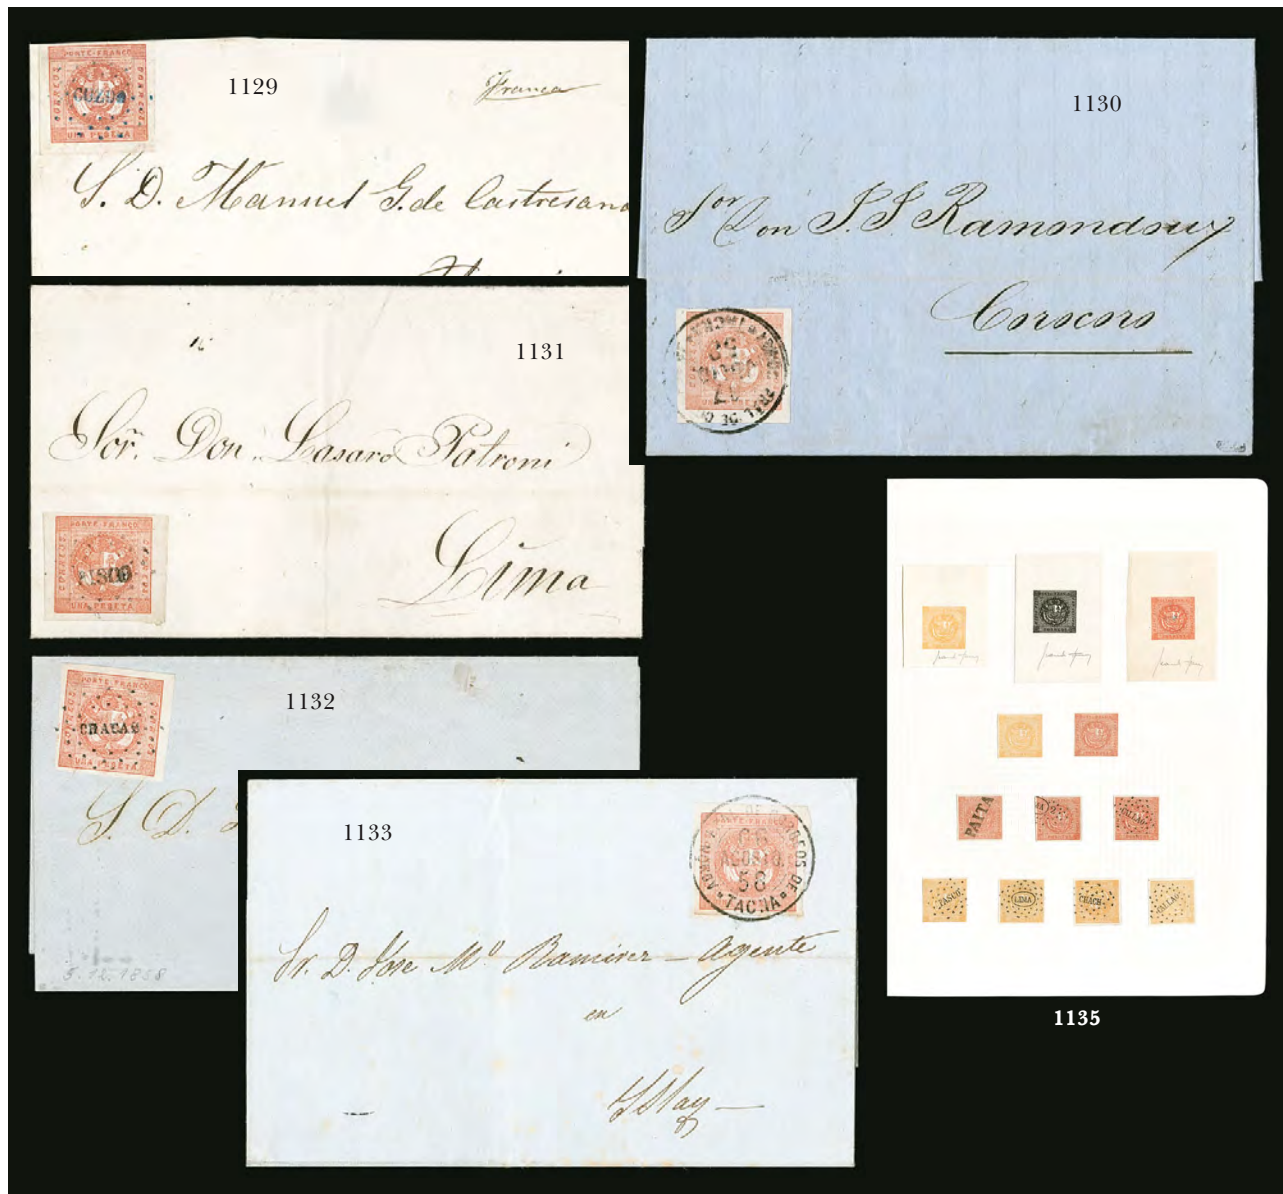 PORTE FRANCO
CORREOS
CUZCO
UNA PESETA
1129
Franca
S. D. Manuel G. de Castresana
1130
Sor Don J. S. Ramondouy
Corocoro
1131
Sor. Don. Lasaro Patroni
Lima
PORTE FRANCO
CORREOS
PISCO
UNA PESETA
PORTE FRANCO
CHACAS
UNA PESETA
1132
S. D.
5.12.1858
1133
PORTE FRANCO
AGOSTO
58
TACNA
Sr. D. Jose Mª Ramirez - Agente
en
Islay
PAITA
CALLAO
PASCO
LIMA
CHACH
CALLAO
1135